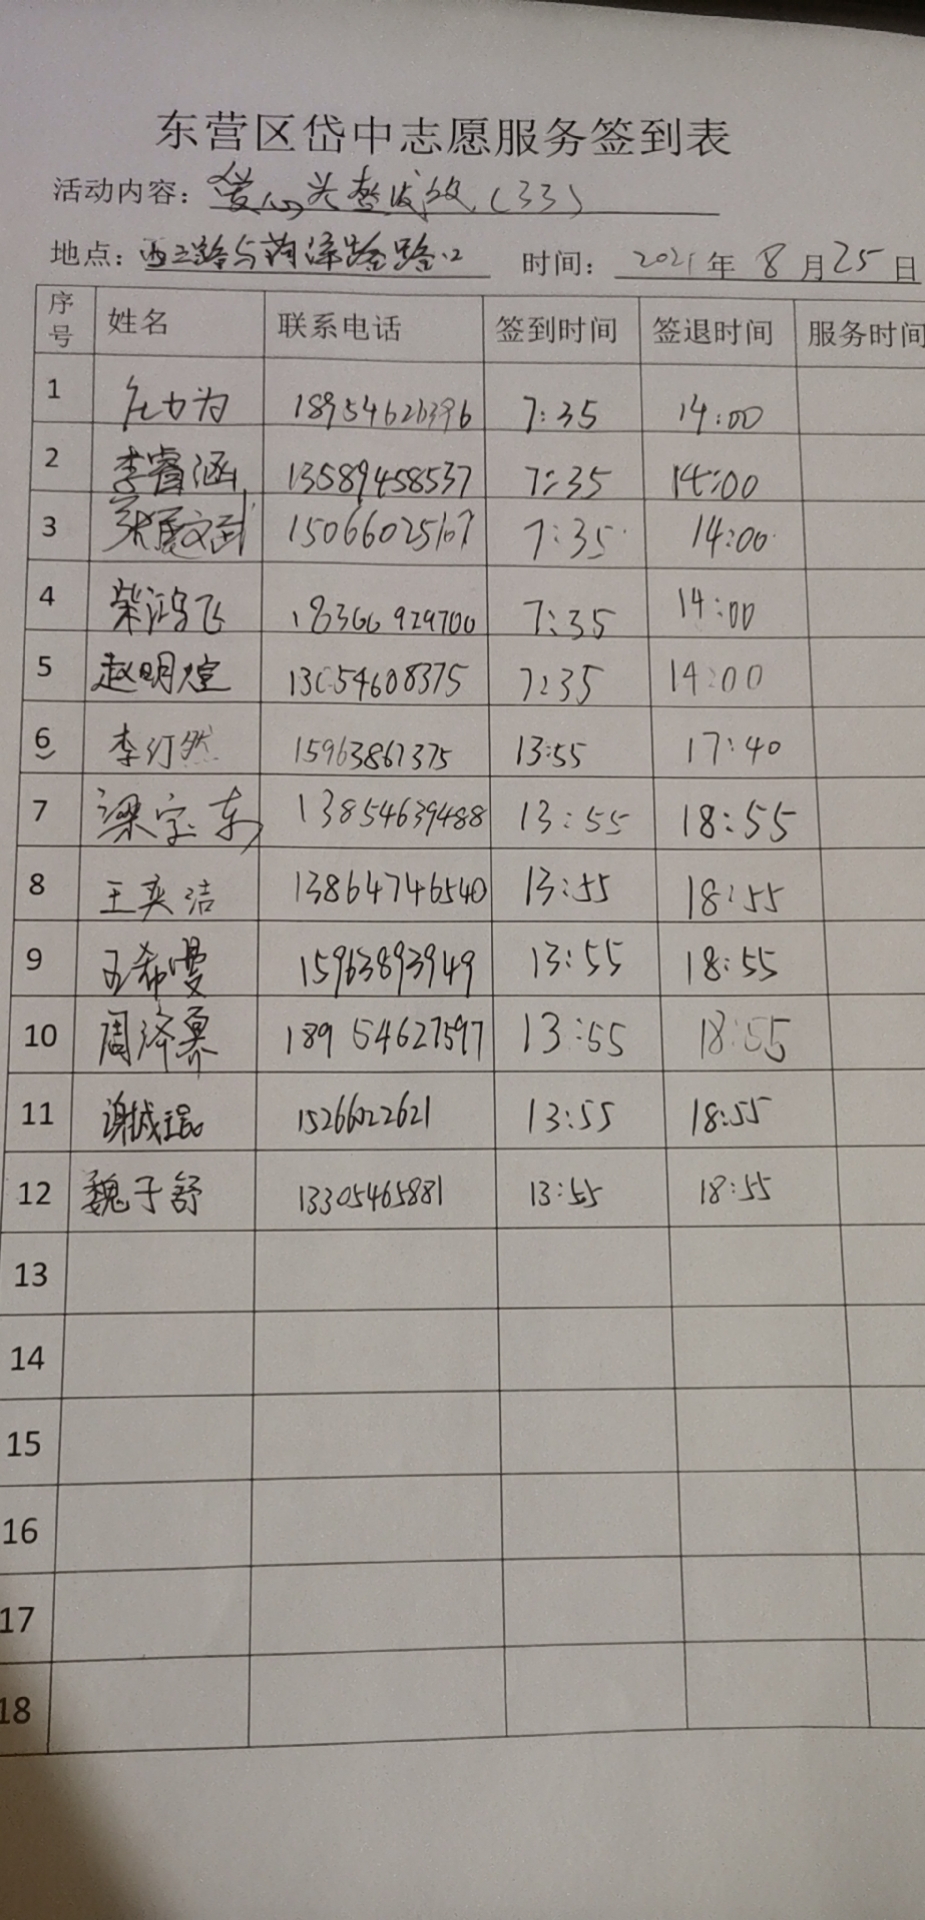 东营区岱中志愿服务签到表
活动内容：爱心头盔发放（33）
地点：西三路与菏泽路路口 时间：2021年8月25日
序号 姓名 联系电话 签到时间 签退时间 服务时间
1 力为 18954621396 7:35 14:00
2 李睿涵 13589458537 7:35 14:00
3 15066025167 7:35 14:00
4 荣鸿飞 18366929700 7:35 14:00
5 赵明煊 13054608375 7:35 14:00
6 李灯然 15963861375 13:55 17:40
7 梁宝东 13854639488 13:55 18:55
8 王奕洁 13864746540 13:55 18:55
9 王希雯 15963893949 13:55 18:55
10 周泽霖 18954627597 13:55 18:55
11 15266022621 13:55 18:55
12 魏子舒 13305465881 13:55 18:55
13
14
15
16
17
18